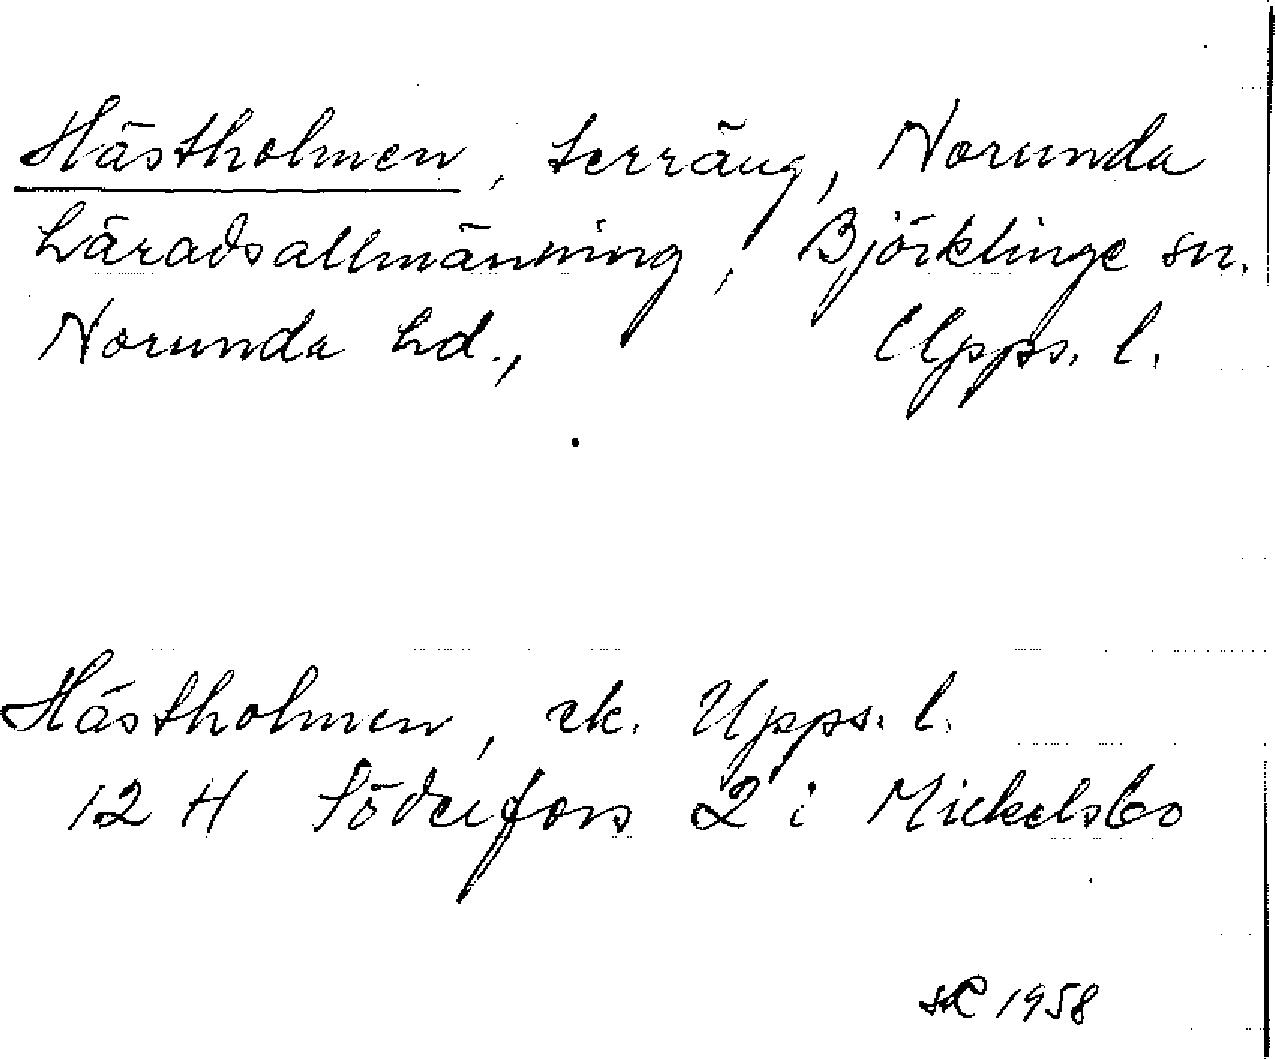 Hästholmen, terräng, Norunda
häradsallmänning, Björklinge sn.
Norunda hd., Upps. l.
Hästholmen, ek. Upps. l.
12 H Söderfors 2 i Mickelsbo
1958